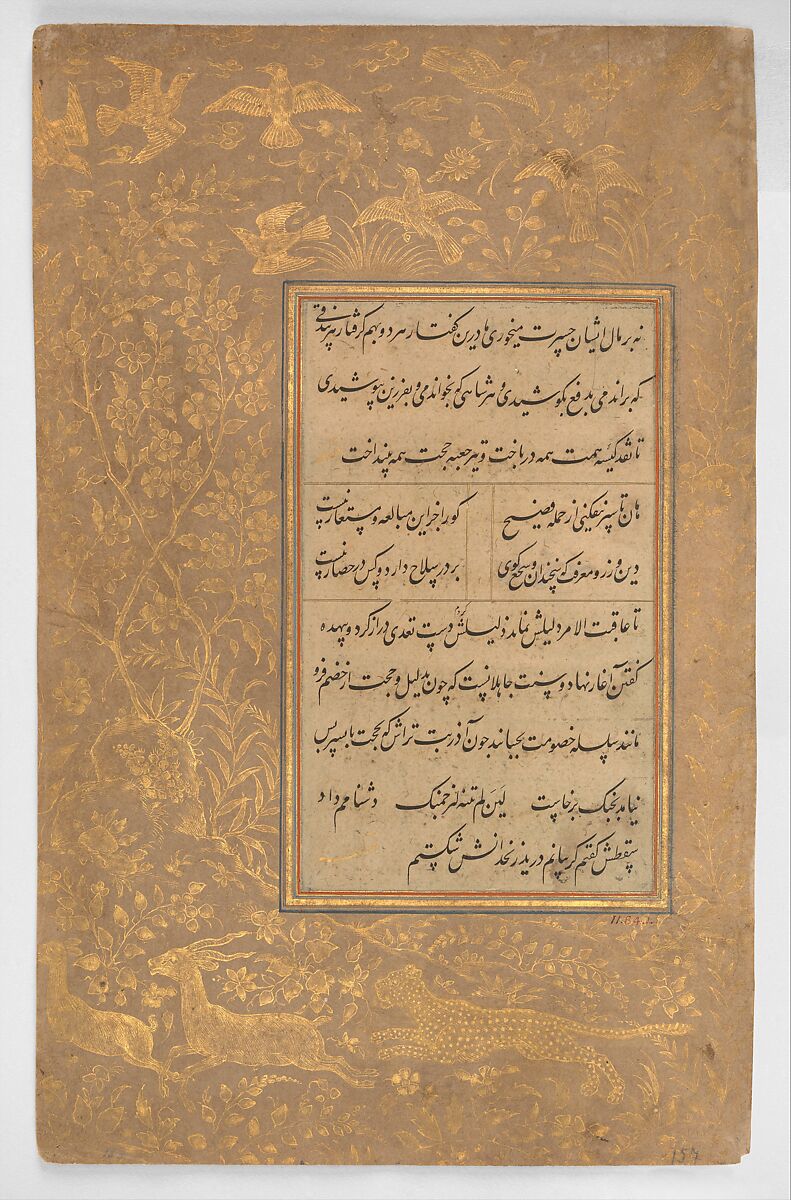 نه بر مال ایشان حسرت میخوری ما درین گفتار هر دو بهم گرفتار هر بیذقی
که براندمی بدفع بکوشیدی و هر شاهی که بخواندمی و بفرزین بپوشیدی
تا نقد کیسه همت همه درباخت و تیر جعبه حجت همه بینداخت
هان تا سپر نیفکنی از حمله فصیح کو را جز این مبالغه و مستعار نیست
دین ورز و معرفت که سخندان سجع گوی بر در سلاح دارد و کس در حصار نیست
تا عاقبت الامر دلیلش نماند ذلیلش کردم دست تعدی دراز کرد و بیهده
گفتن آغاز نهاد و سنت جاهلانست که چون بدلیل و حجت از خصم فرو
مانند سلسله خصومت بجنبانند چون آذر بت تراش که بحجت با پسر بس
نیامد بجنگ برخاست لین لم تنته لارجمنک دشنامم داد
سقطش گفتم گریبانم درید زنخدانش شکستم
11.84.1.
157